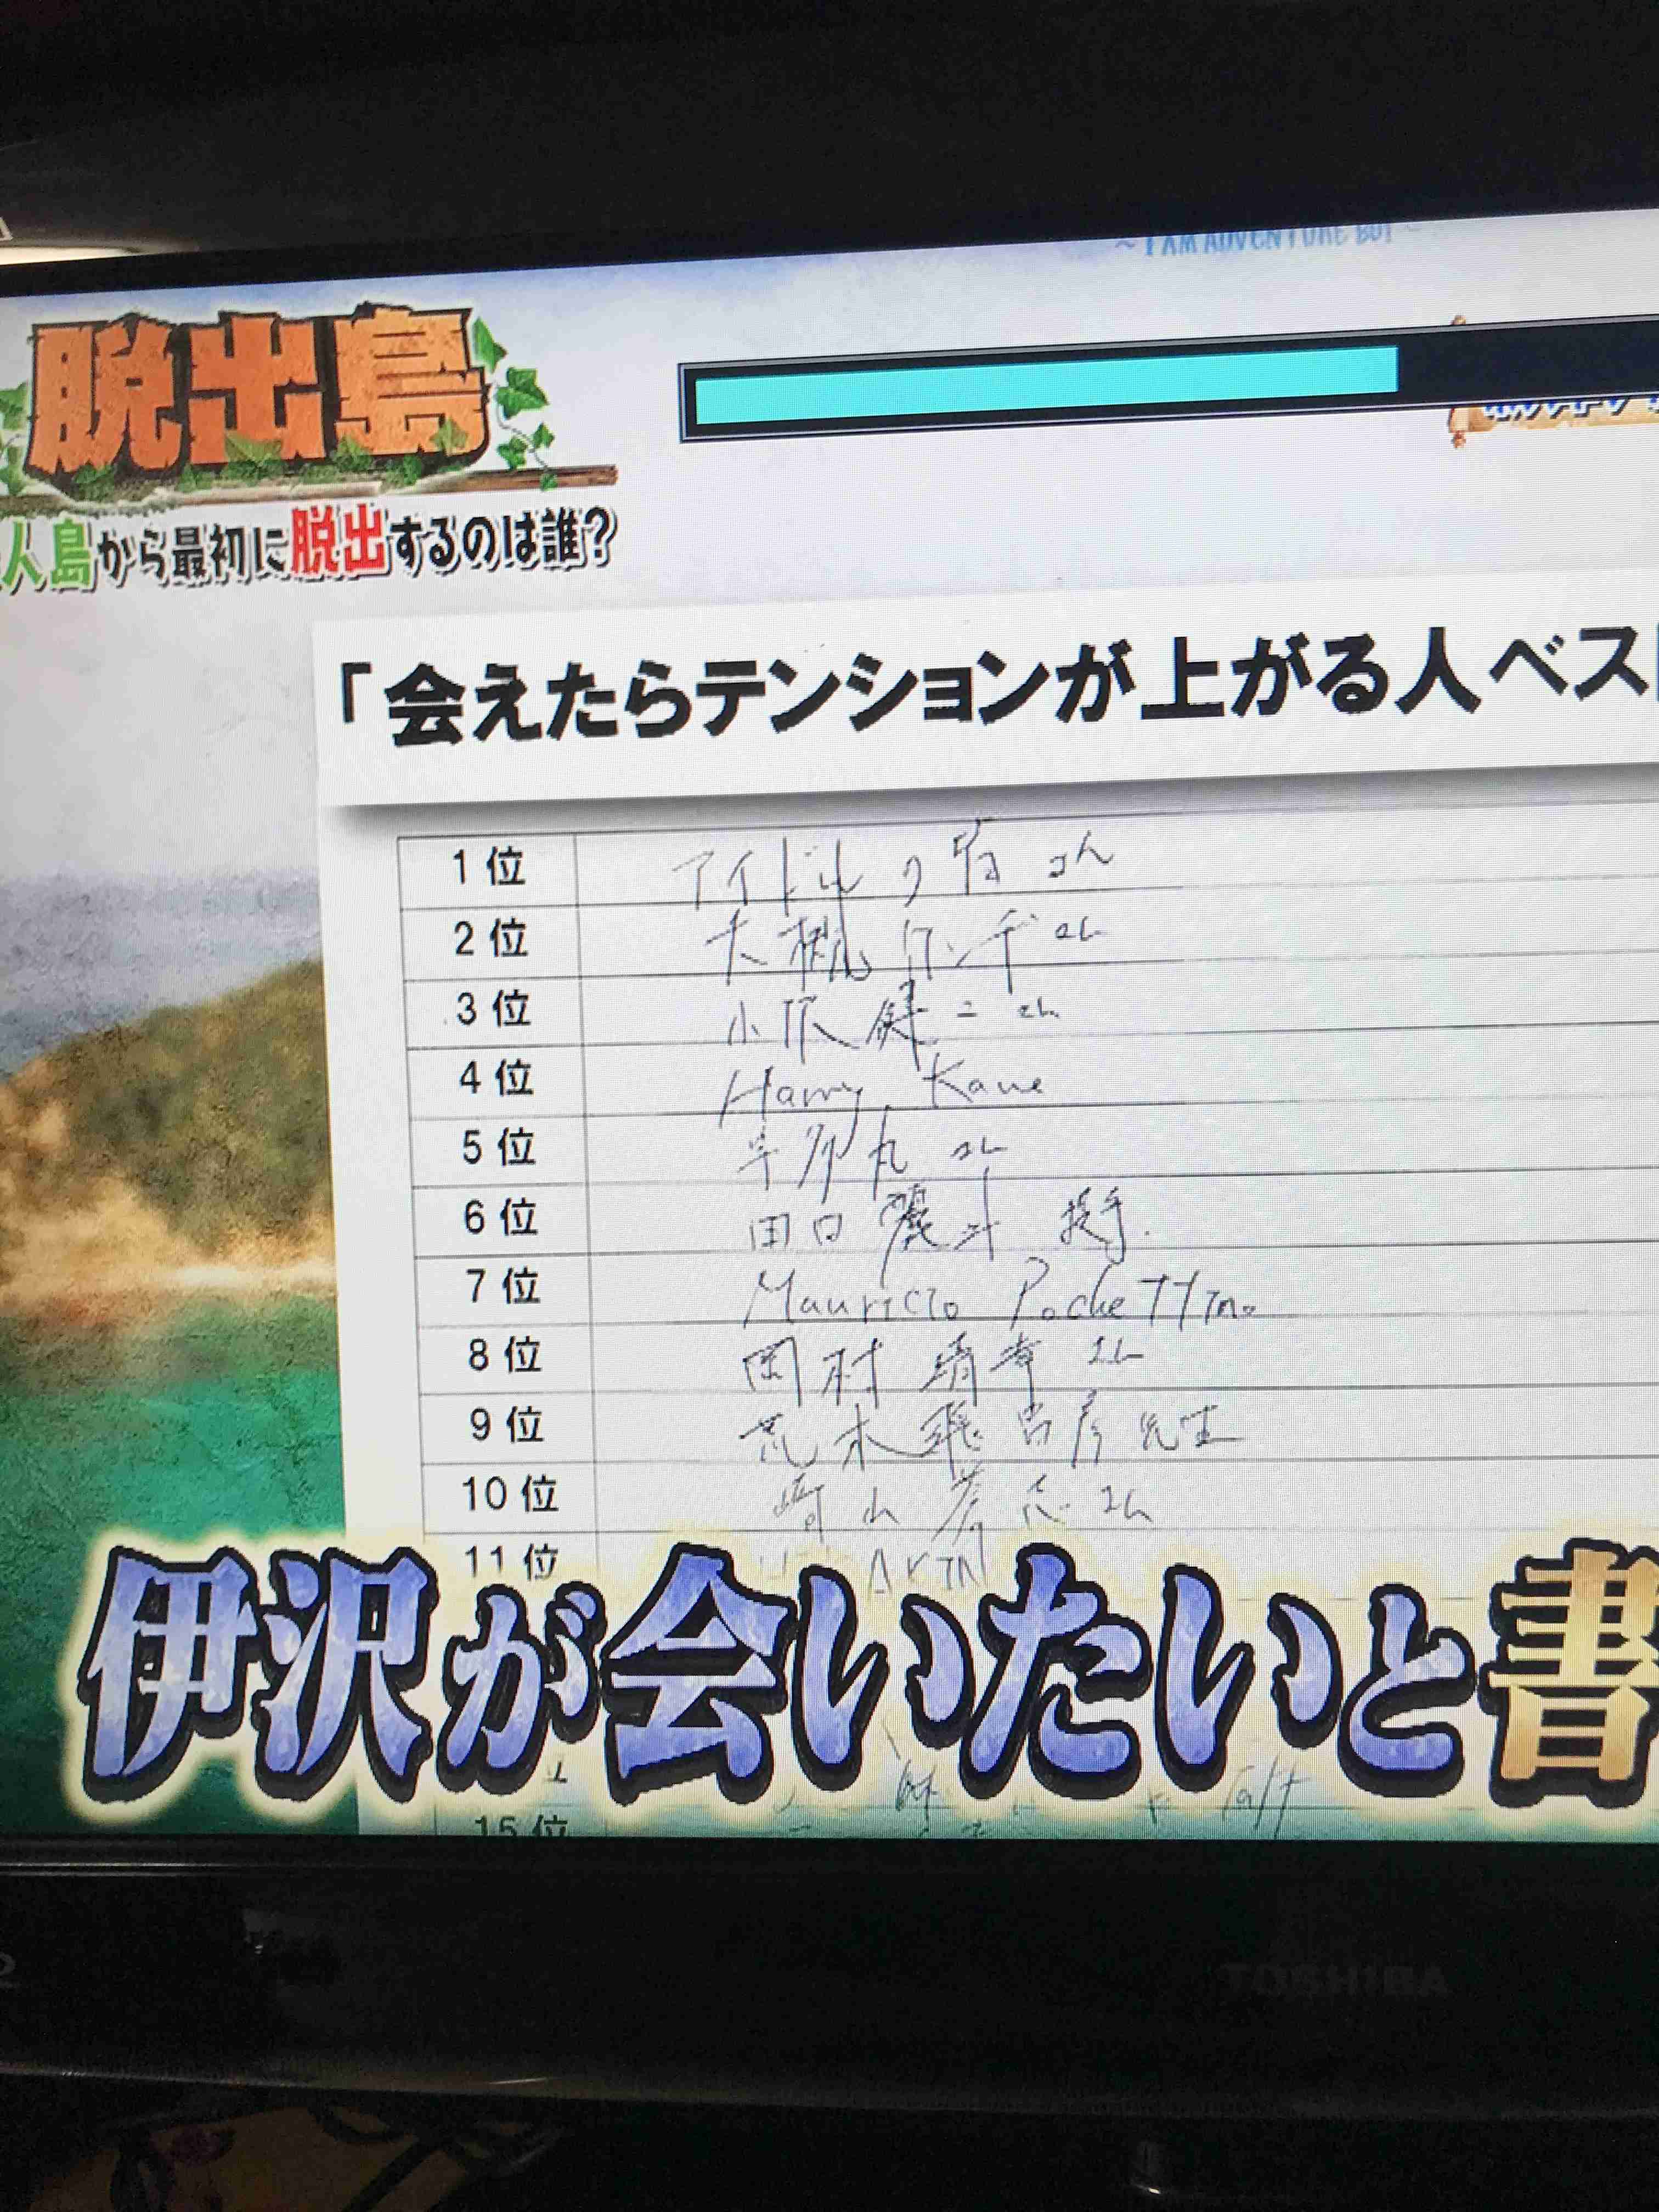 ~ I AM ADVENTURE BOY ~
脱出島
人島から最初に脱出するのは誰?
「会えたらテンションが上がる人ベス
1位 アイドル さん
2位 大槻ケンヂさん
3位 小沢健二さん
4位 Harry Kane
5位 宇多丸さん
6位 田口麗斗 投手
7位 Mauricio Pochettino
8位 岡村靖幸さん
9位 荒木飛呂彦先生
10位 崎山蒼志さん
11位
伊沢が会いたいと書
15位
TOSHIBA